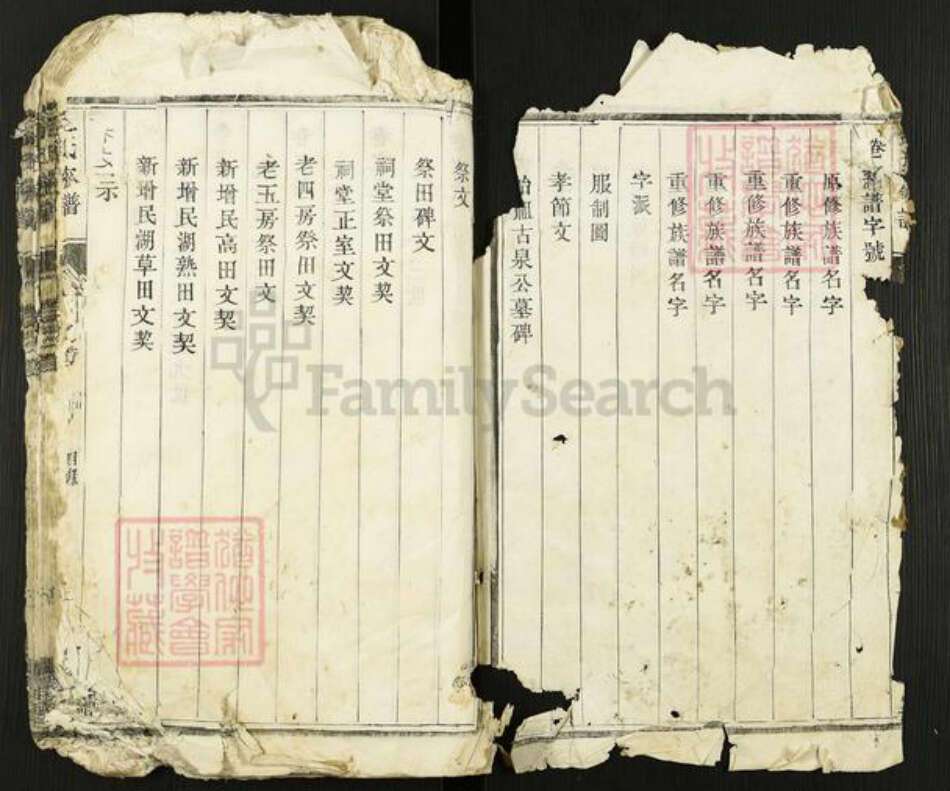 卷二 領譜字號
原修族譜名字
重修族譜名字
重修族譜名字
重修族譜名字
重修族譜名字
字派
服制圖
孝節文
始祖古泉公墓碑
祭文
祭田碑文
祠堂祭田文契
祠堂正室文契
老四房祭田文契
老五房祭田文
新增民高田文契
新增民湖熟田文契
新增民湖草田文契
示
氏家譜
目錄
譜學會
收藏
FamilySearch